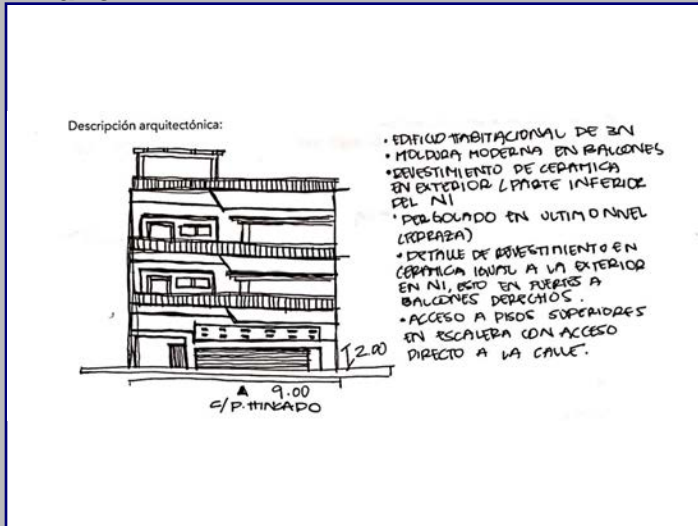 Descripción arquitectónica:
• EDIFICIO HABITACIONAL DE 3N
• MOLDURA MODERNA EN BALCONES
• REVESTIMIENTO DE CERAMICA
EN EXTERIOR (PARTE INFERIOR
DEL N1
• PERGOLADO EN ULTIMO NIVEL
(TERRAZA)
• DETALLE DE REVESTIMIENTO EN
CERAMICA IGUAL A LA EXTERIOR
EN N1, ESTO EN PUERTAS A
BALCONES DERECHOS.
• ACCESO A PISOS SUPERIORES
EN ESCALERA CON ACCESO
DIRECTO A LA CALLE.
2.00
9.00
C/P. HINCADO